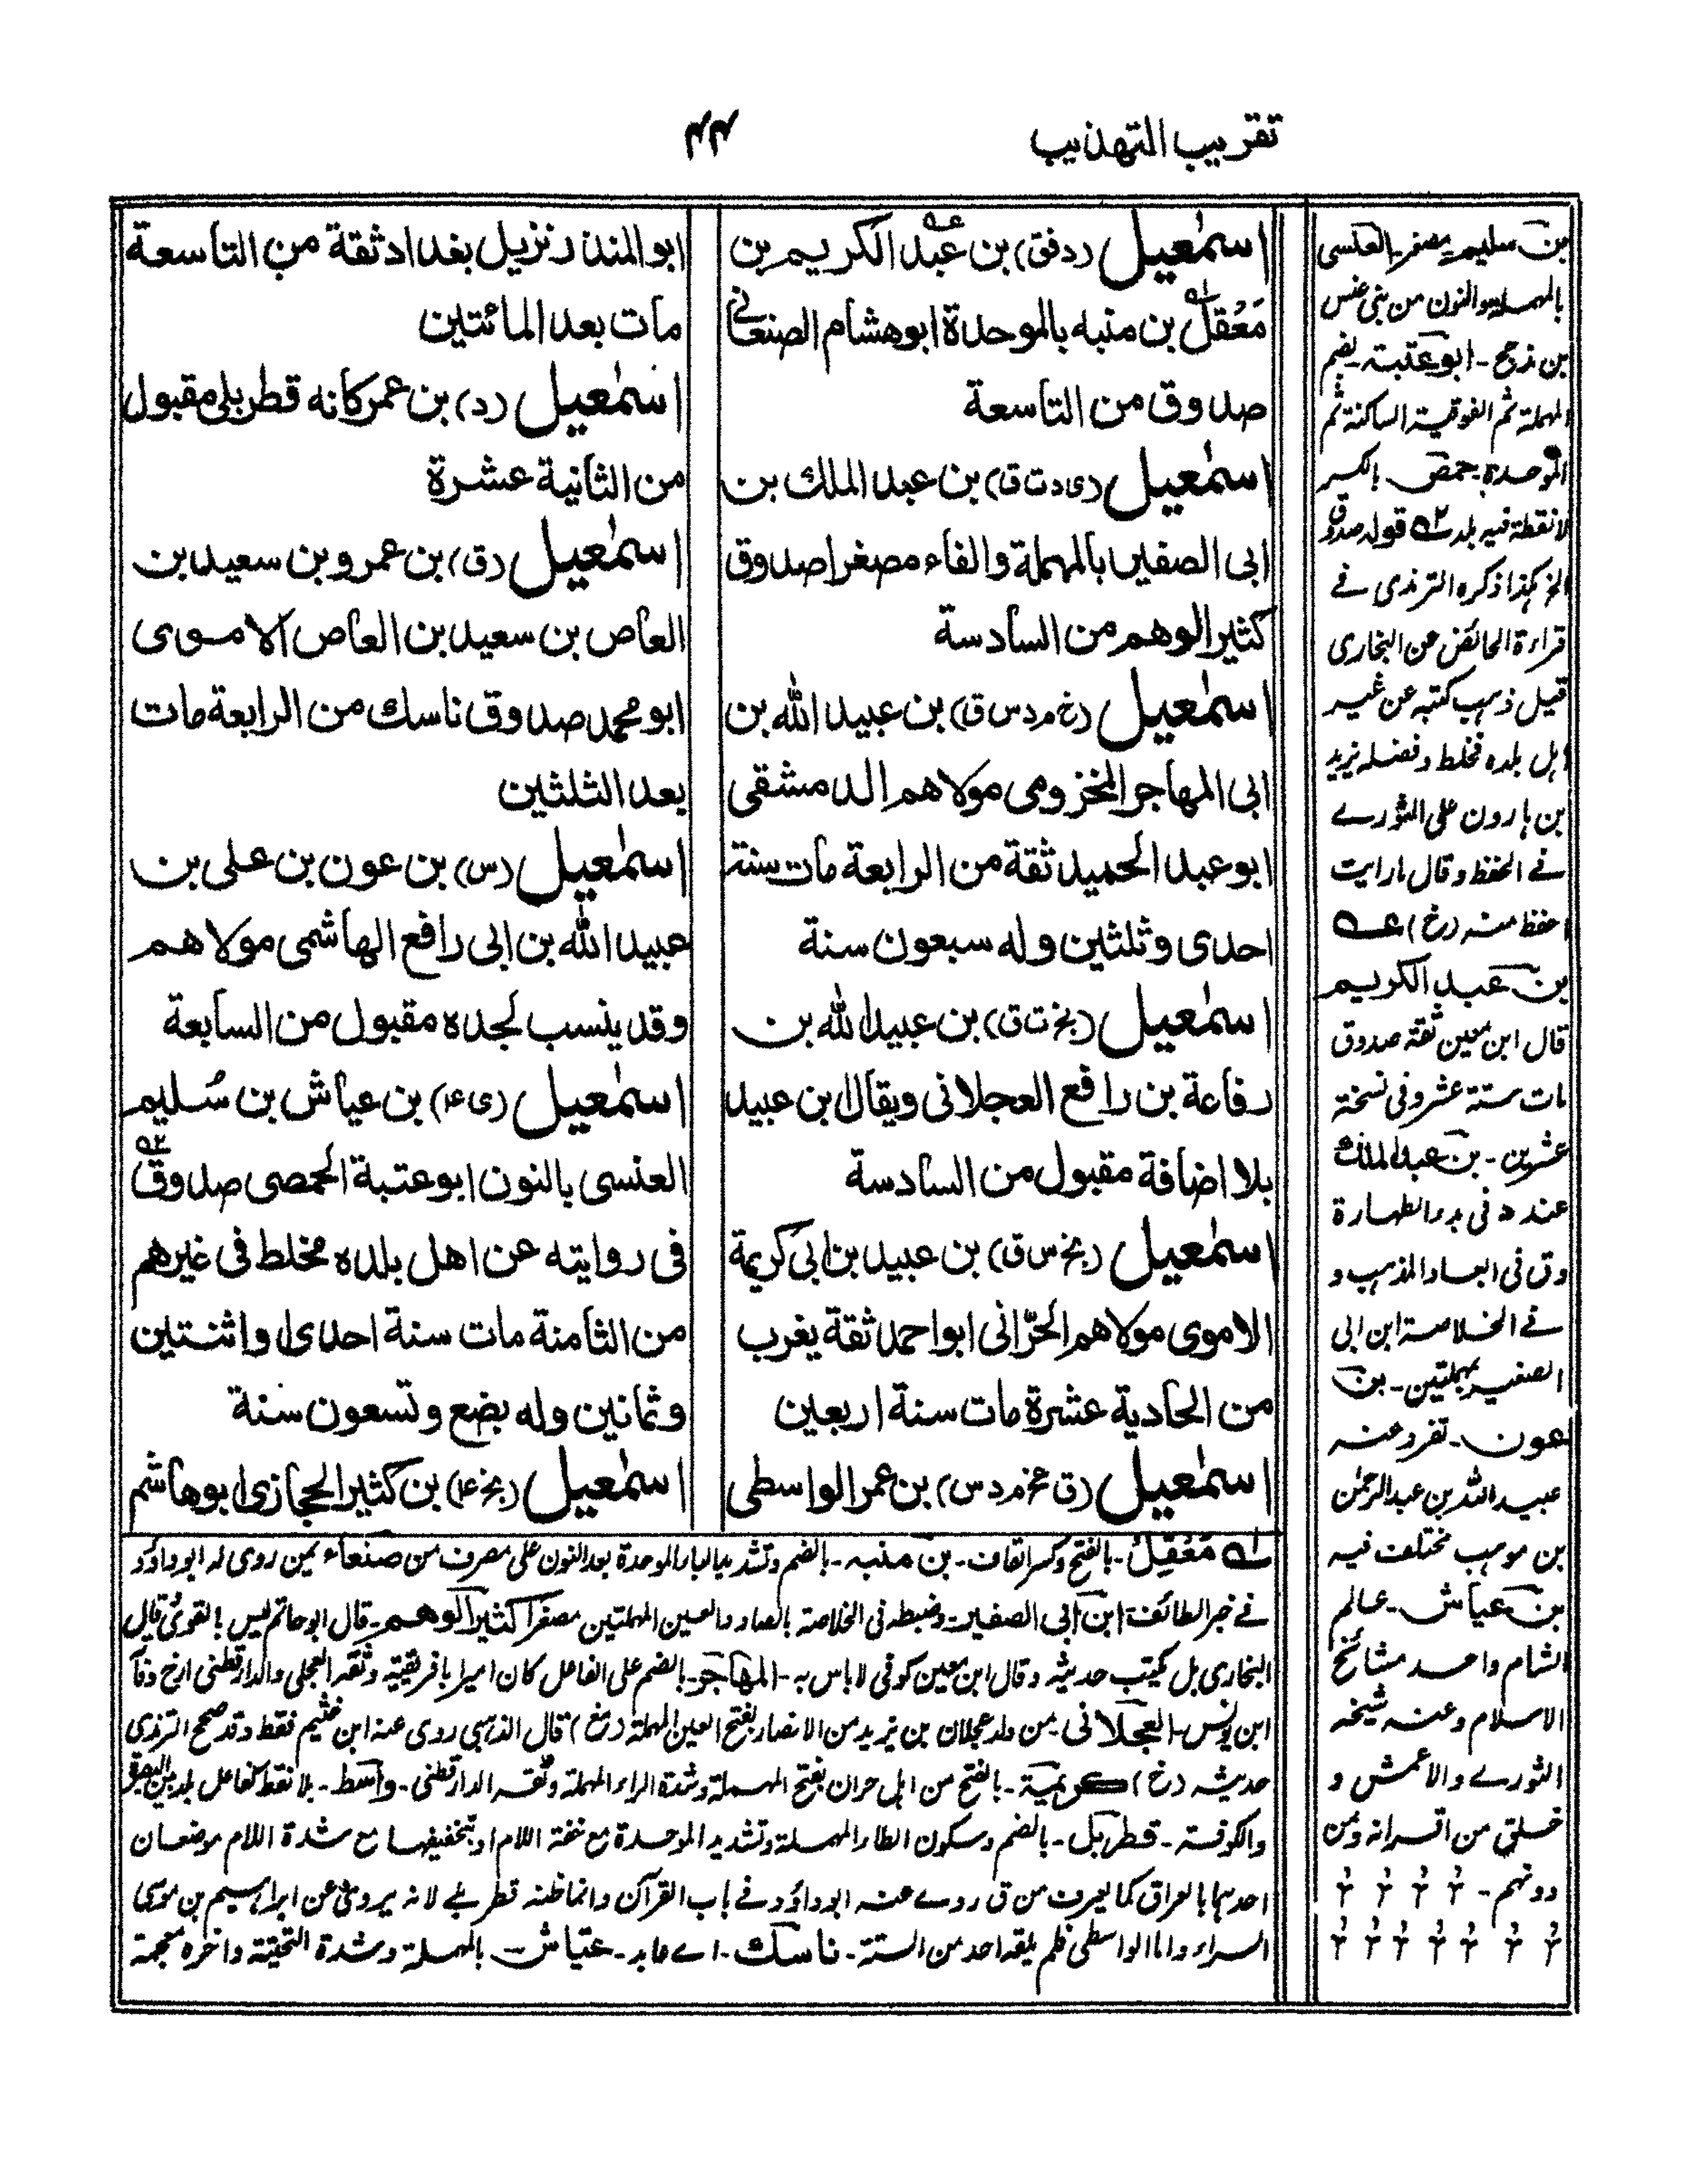 تقريب التهذيب
۴۴
اسمٰعيل (د فق) بن عبد الكريم بن
مَعْقِل بن منبه بالموحدة ابو هشام الصنعانى
صدوق من التاسعة
اسمٰعيل (ى د ت ق) بن عبد الملك بن
ابى الصفير بالمهملة والفاء مصغرا صدوق
كثير الوهم من السادسة
اسمٰعيل (خ م د س ق) بن عبيد الله بن
ابى المهاجر المخزومى مولاهم الدمشقى
ابو عبد الحميد ثقة من الرابعة مات سنة
احدى وثلثين وله سبعون سنة
اسمٰعيل (بخ ت ق) بن عبيد الله بن
رفاعة بن رافع العجلانى ويقال بن عبيد
بلا اضافة مقبول من السادسة
اسمٰعيل (بخ س ق) بن عبيد بن ابى كريمة
الاموى مولاهم الحرّانى ابو احمد ثقة يغرب
من الحادية عشرة مات سنة اربعين
اسمٰعيل (ق عخ م د س) بن عمر الواسطى
ابو المنذر نزيل بغداد ثقة من التاسعة
مات بعد المائتين
اسمٰعيل (د) بن عمر كانه قطربلى مقبول
من الثانية عشرة
اسمٰعيل (ق) بن عمرو بن سعيد بن
العاص بن سعيد بن العاص الاموى
ابو محمد صدوق ناسك من الرابعة مات
بعد الثلثين
اسمٰعيل (س) بن عون بن على بن
عبيد الله بن ابى رافع الهاشمى مولاهم
وقد ينسب لجده مقبول من السابعة
اسمٰعيل (ى ۴) بن عياش بن سُليم
العنسى بالنون ابو عتبة الحمصى صدوق
فى روايته عن اهل بلده مخلط فى غيرهم
من الثامنة مات سنة احدى او اثنتين
وثمانين وله بضع وتسعون سنة
اسمٰعيل (بخ ۴) بن كثير الحجازى ابو هاشم
بن سليم مصغر العنسى
بالمهملة والنون من بنى عنس
بن مذحج - ابو عتبة بضم
المهملة ثم الفوقية الساكنة ثم
الموحدة حمص بالكسر
لا نقطة فيه بلد ۲ قوله صدوق
الخ كذا ذكره الترمذى فى
قراءة الحائض عن البخارى
قيل ذهب كتبه عن غير
اهل بلده فخلط وفضله يزيد
بن هارون على الثورى
فى الحفظ وقال ما رايت
احفظ منه (خ)
بن عبد الكريم
قال ابن معين ثقة صدوق
مات ستة عشر وفى نسخة
عشرين - بن عبد الملك
عند د فى بدء الطهارة
و ق فى ابعاد المذهب و
فى الخلاصة ابن ابى
الصفير بمهملتين - بن
عون - تفرد عنه
عبيد الله بن عبد الرحمٰن
بن موهب مختلف فيه
بن عياش - عالم
الشام واحد مشائخ
الاسلام وعنه شيخه
الثورى والاعمش و
خلق من اقرانه ومن
دونهم -
مَعْقِل - بالفتح وكسر القاف - بن منبه - بالضم وتشديد الباء الموحدة بعد النون على مصرف من صنعاء يمن روى له ابو داؤد
فى خبر الطائف ابن ابى الصفير - وضبطه فى الخلاصة بالصاد والعين المهملتين مصغرا كثير الوهم - قال ابو حاتم ليس بالقوى قال
البخارى بل يكتب حديثه وقال ابن معين كوفى لا باس به - المهاجر - بالضم على الفاعل كان اميرا بافريقية وثقه العجلى والدارقطنى ارخ وفاته
ابن يونس - العجلانى - من ولد عجلان بن يزيد من الانصار بفتح العين المهملة (مغ) قال الذهبى روى عنه ابن خثيم فقط وقد صحح الترمذى
حديثه (خ) كريمة - بالفتح من اهل حران بفتح المهملة وشدة الراء المهملة وثقه الدارقطنى - واسط - بلا نقط كفاعل بلد بين البصرة
والكوفة - قطربل - بالضم وسكون الطاء المهملة وتشديد الموحدة مع خفة اللام او بتخفيفها مع شدة اللام موضعان
احدهما بالعراق كما يعرف من ق روى عنه ابو داؤد فى باب القرآن وانما ظنه قطربلى لانه يروى عن ابراهيم بن موسى
السراء واما الواسطى فلم يلقه احد من الستة - ناسك - اى عابد - عياش بالمهملة وشدة التحتية واخره معجمة